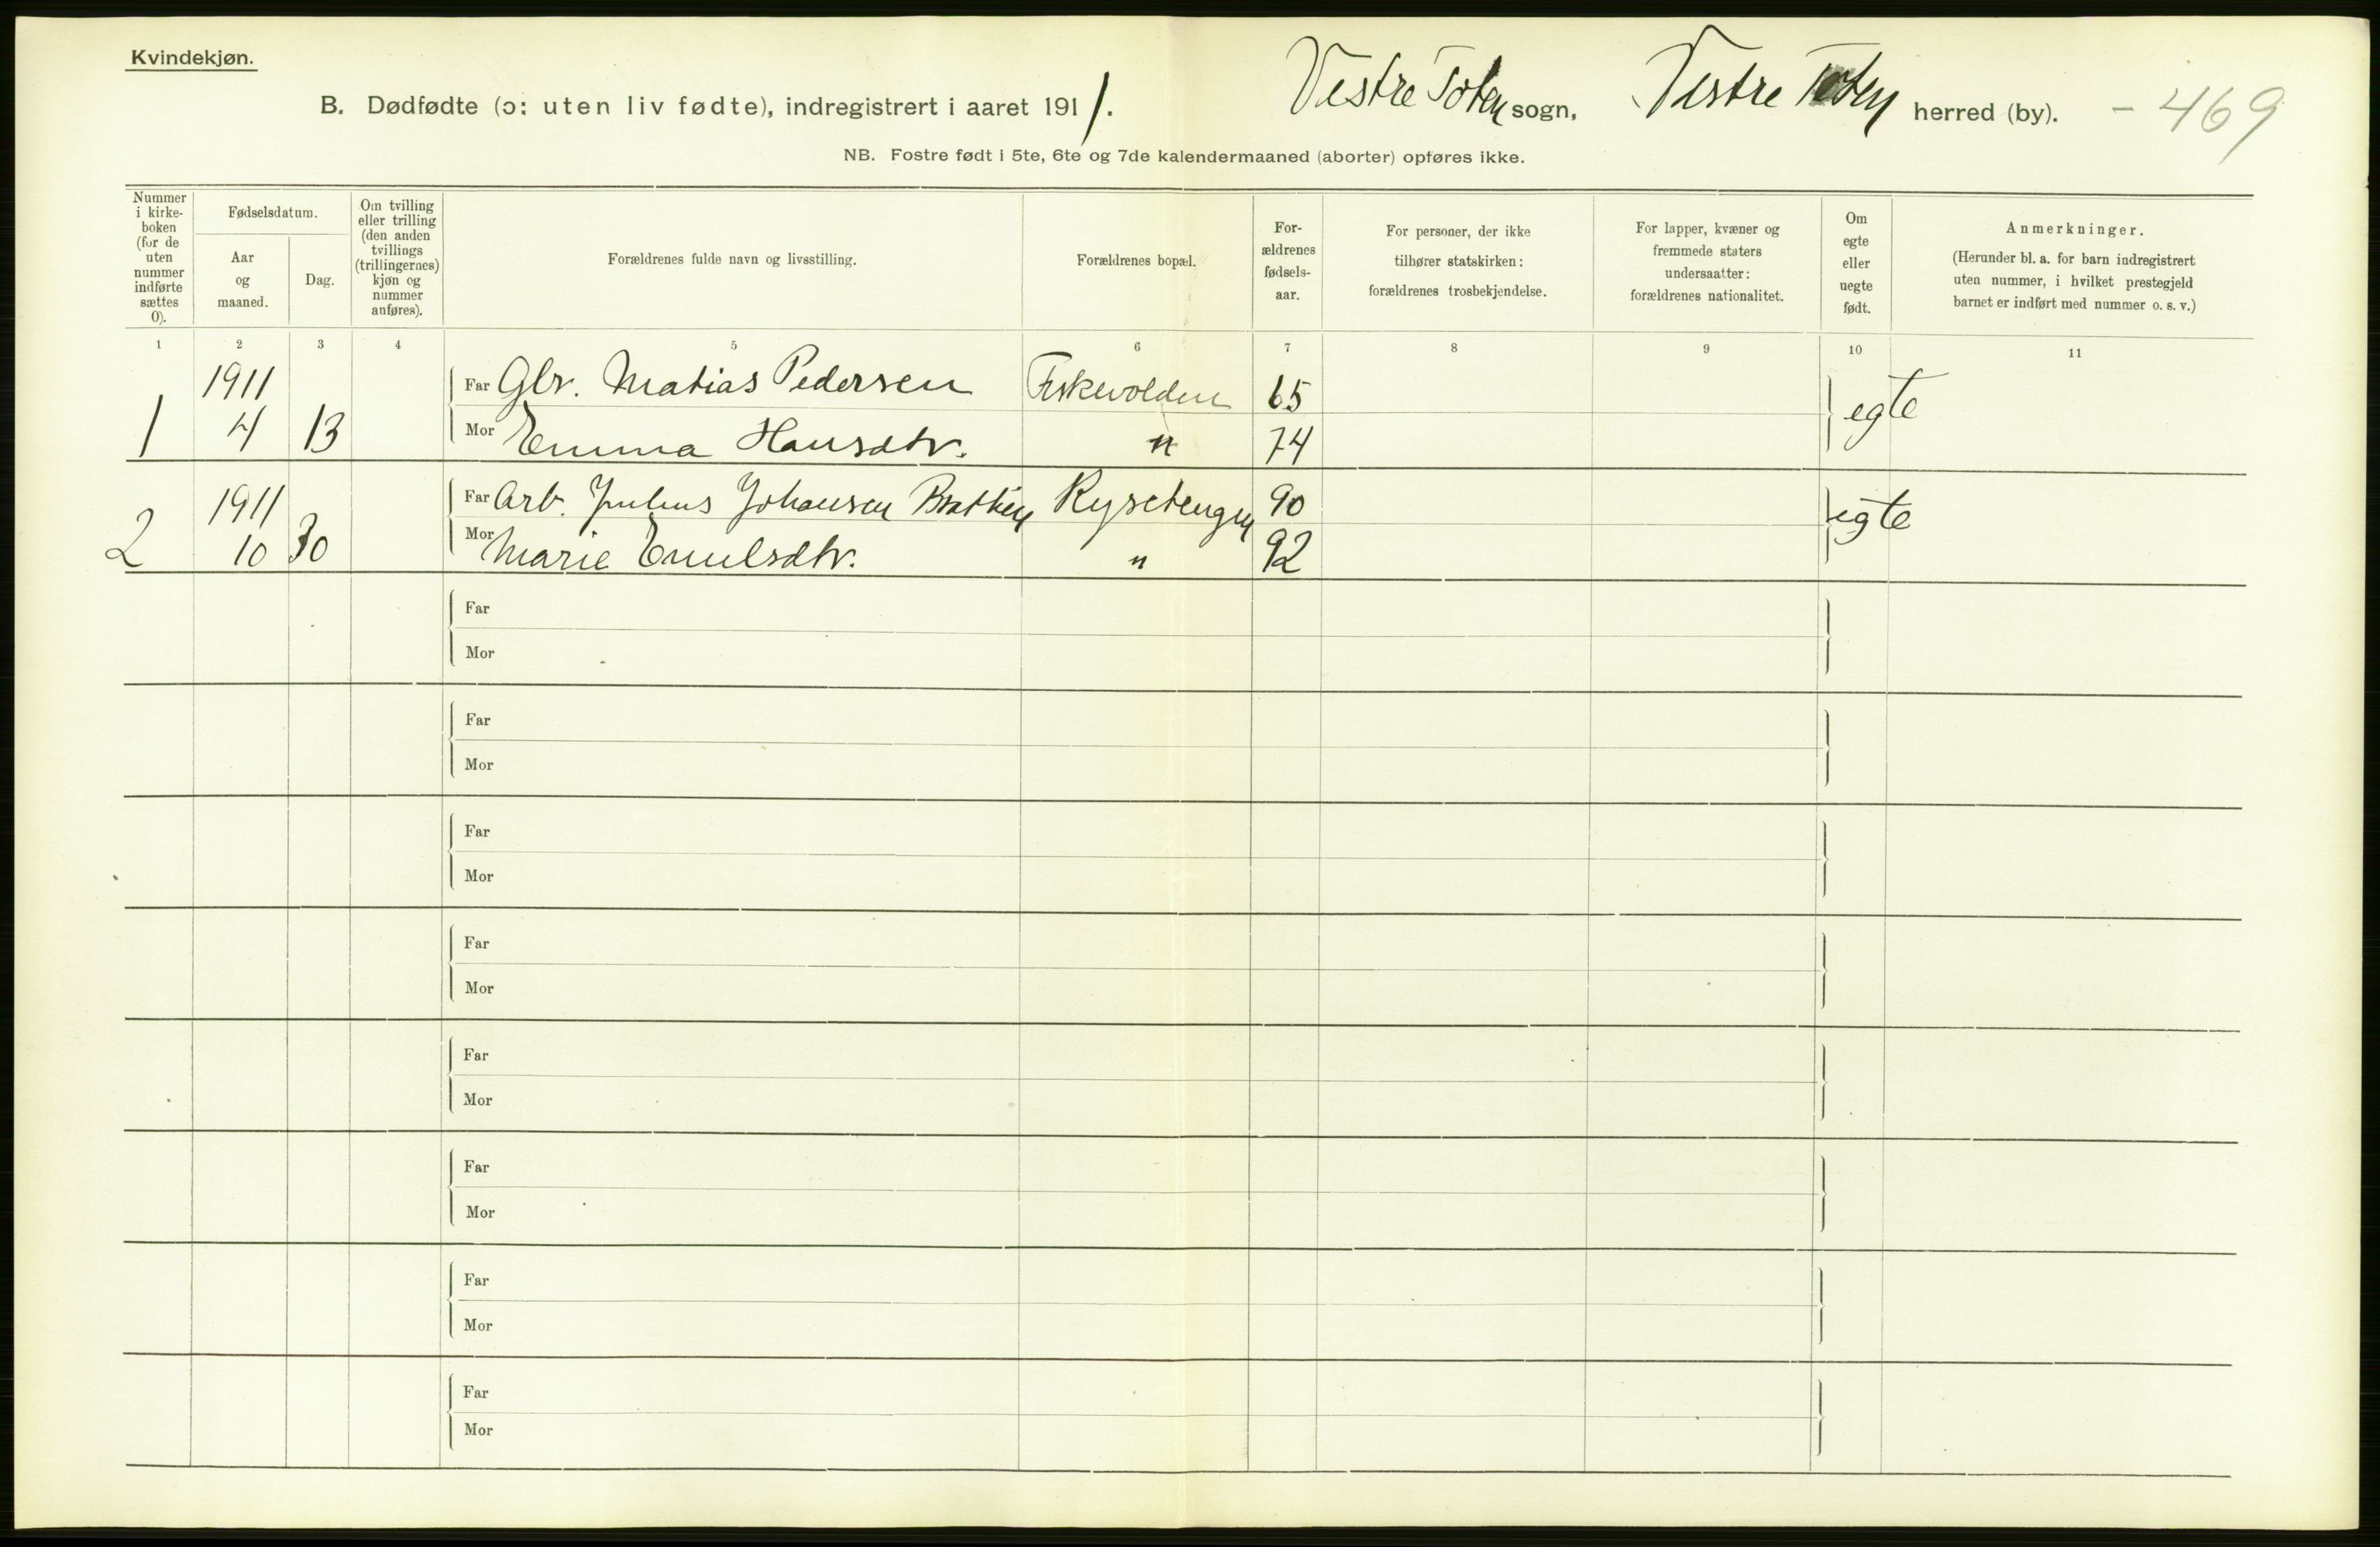 Kvindekjøn.
B. Dødfødte (ɔ: uten liv fødte), indregistrert i aaret 1911. Vestre Toten sogn, Vestre Toten herred (by). – 469
NB. Fostre født i 5te, 6te og 7de kalendermaaned (aborter) opføres ikke.
Nummer i kirke-boken (for de uten nummer indførte sættes 0).
Fødselsdatum.
Aar og maaned.
Dag.
Om tvilling eller trilling (den anden tvillings (trillingernes) kjøn og nummer anføres).
Forældrenes fulde navn og livsstilling.
Forældrenes bopæl.
For-ældrenes fødsels-aar.
For personer, der ikke tilhører statskirken: forældrenes trosbekjendelse.
For lapper, kvæner og fremmede staters undersaatter: forældrenes nationalitet.
Om egte eller uegte født.
Anmerkninger.
(Herunder bl. a. for barn indregistrert uten nummer, i hvilket prestegjeld barnet er indført med nummer o. s. v.)
1 2 3 4 5 6 7 8 9 10 11
1911 Far Gbr. Matias Pedersen 65 egte
1 4 13 Mor Emma Hansdtr. " 74
1911 Far Arb. Julius Johansen Bratlien Rysetengen 90 egte
2 10 30 Mor Marie Emilsdtr. " 92
Far
Mor
Far
Mor
Far
Mor
Far
Mor
Far
Mor
Far
Mor
Far
Mor
Far
Mor